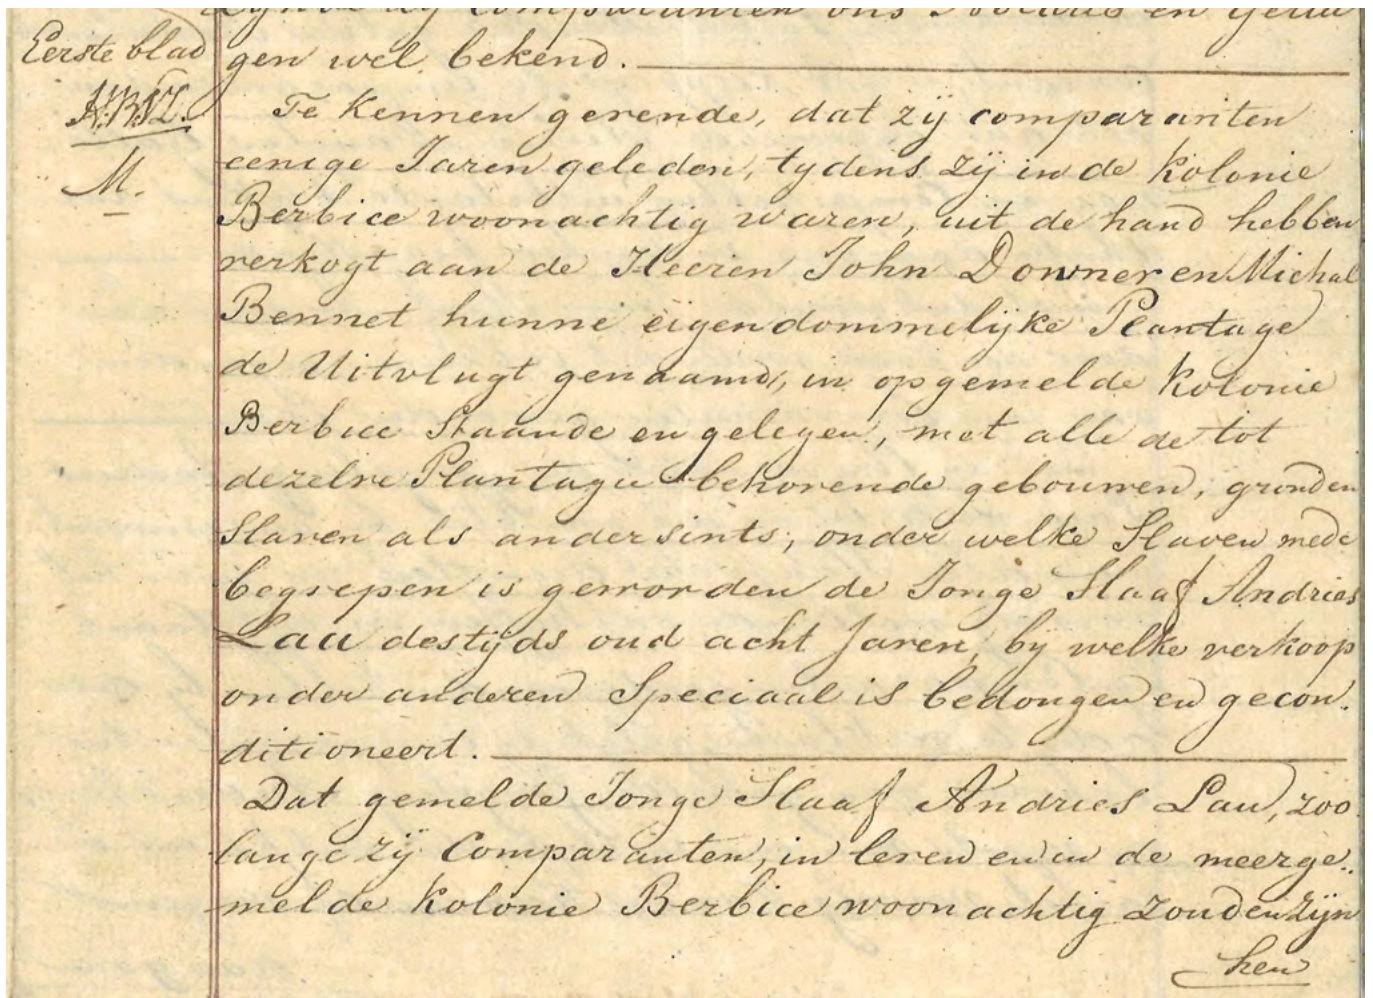 zijnde zij Comparanten ons Notaris en getui
Eerste blad
gen wel bekend.
M.
Te kennen gevende, dat zij comparanten
eenige Jaren geleden, tydens zij in de kolonie
Berbice woonachtig waren, uit de hand hebben
verkogt aan de Heeren John Downer en Michal
Bennet hunne eigendommelijke Plantage
de Uitvlugt genaamd, in opgemelde kolonie
Berbice Staande en gelegen, met alle de tot
dezelve Plantagie behorende gebouwen, gronden
Slaven als andersints, onder welke Slaven mede
begrepen is geworden de Jonge Slaaf Andries
Lau destijds oud acht Jaren, by welke verkoop
onder anderen Speciaal is bedongen en gecon.
ditioneert.
Dat gemelde Jonge Slaaf Andries Lau, zoo
lange zij Comparanten, in leven en in de meerge..
melde kolonie Berbice woonachtig zouden zijn
hen